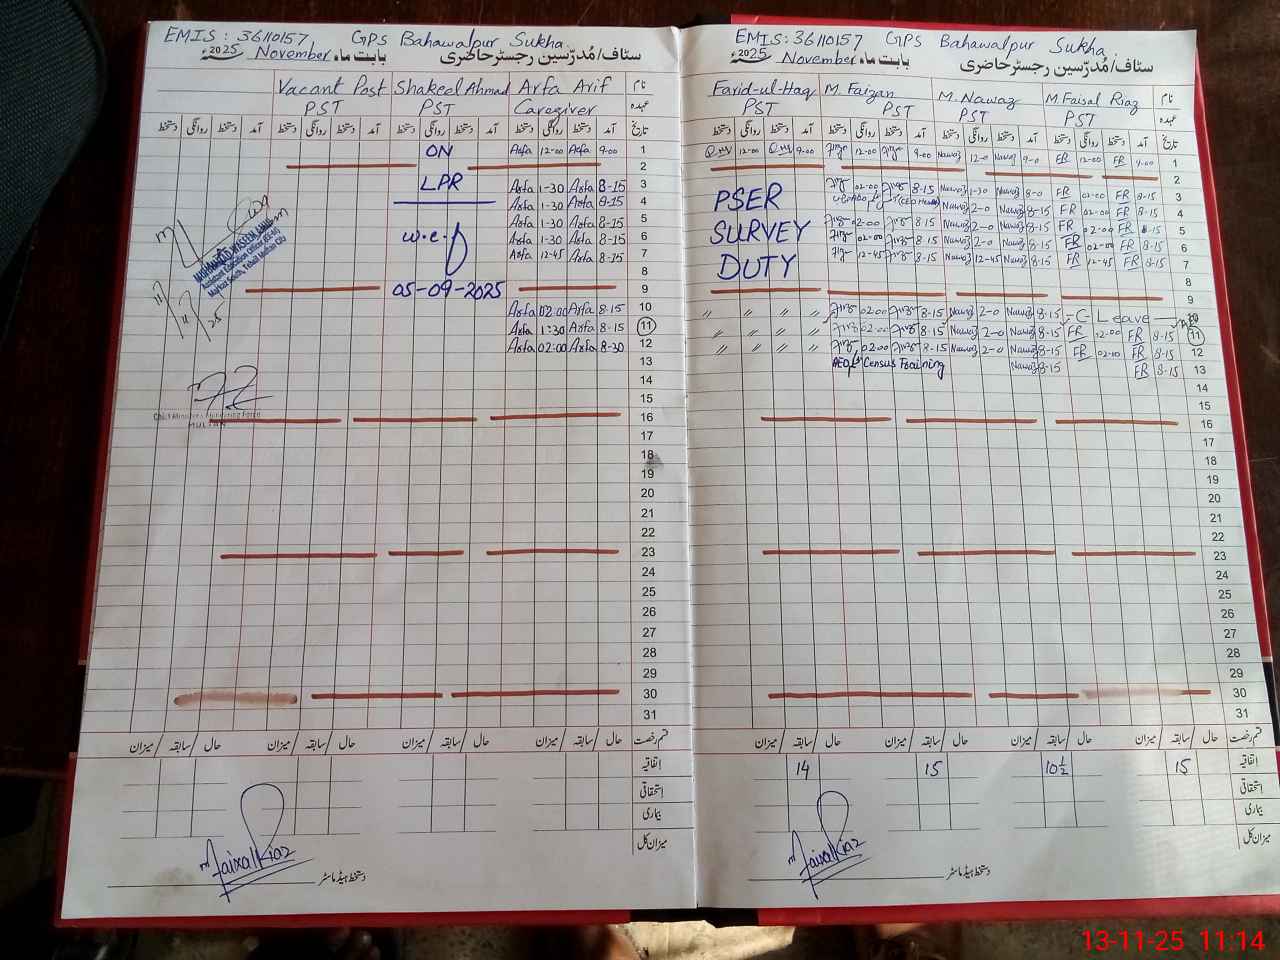 EMIS: 36110157 GPS Bahawalpur Sukha
سٹاف/مُدرّسین رجسٹر حاضری بابت ماہ November 2025ء
نام Arfa Arif Shakeel Ahmad Vacant Post
عہدہ Caregiver PST PST
تاریخ آمد دستخط روانگی دستخط آمد دستخط روانگی دستخط آمد دستخط روانگی دستخط آمد دستخط روانگی دستخط
1 9-00 Arfa 12-00 Arfa ON
2
3 8-15 Arfa 1-30 Arfa LPR
4 8-15 Arfa 1-30 Arfa
5 8-15 Arfa 1-30 Arfa
6 8-15 Arfa 1-30 Arfa w.e.f
7 8-15 Arfa 12-45 Arfa
8
9 05-09-2025
10 8-15 Arfa 02:00 Arfa
11 8-15 Arfa 1:30 Arfa
12 8-30 Arfa 02:00 Arfa
13
14
15
16
17
18
19
20
21
22
23
24
25
26
27
28
29
30
31
Chief Minister's Monitoring Force
MULTAN
قسم رخصت حال / سابقہ / میزان حال / سابقہ / میزان حال / سابقہ / میزان حال / سابقہ / میزان
اتفاقیہ
استحقاقی
بیماری
میزان کل
دستخط ہیڈ ماسٹر
EMIS: 36110157 GPS Bahawalpur Sukha
سٹاف/مُدرّسین رجسٹر حاضری بابت ماہ November 2025ء
نام M. Faisal Riaz M. Nawaz M. Faizan Farid-ul-Haq
عہدہ PST PST PST PST
تاریخ آمد دستخط روانگی دستخط آمد دستخط روانگی دستخط آمد دستخط روانگی دستخط آمد دستخط روانگی دستخط
1 9-00 FR 12-00 FR 9-0 Nawaz 12-0 Nawaz 9-00 12-00 9-00 12-00
2
3 8-15 FR 02-00 FR 8-0 Nawaz 1-30 Nawaz 8-15 02-00 PSER
4 8-15 FR 02-00 FR 8-15 Nawaz 2-0 Nawaz
5 8-15 FR 02-00 FR 8-15 Nawaz 2-0 Nawaz 8-15 02-00 SURVEY
6 8-15 FR 02-00 FR 8-15 Nawaz 2-0 Nawaz 8-15 02-00
7 8-15 FR 12-45 FR 8-15 Nawaz 12-45 Nawaz 8-15 12-45 DUTY
8
9
10 C-Leave 8-15 Nawaz 2-0 Nawaz 8-15 02:00 〃 〃 〃 〃
11 8-15 FR 12-00 FR 8-15 Nawaz 2-0 Nawaz 8-15 02:00 〃 〃 〃 〃
12 8-15 FR 02-00 FR 8-15 Nawaz 2-0 Nawaz 8-15 02:00 〃 〃 〃 〃
13 8-15 FR 8-15 Nawaz Census Training
14
15
16
17
18
19
20
21
22
23
24
25
26
27
28
29
30
31
قسم رخصت حال / سابقہ / میزان حال / سابقہ / میزان حال / سابقہ / میزان حال / سابقہ / میزان
اتفاقیہ 15 10½ 15 14
استحقاقی
بیماری
میزان کل
دستخط ہیڈ ماسٹر
13-11-25 11:14